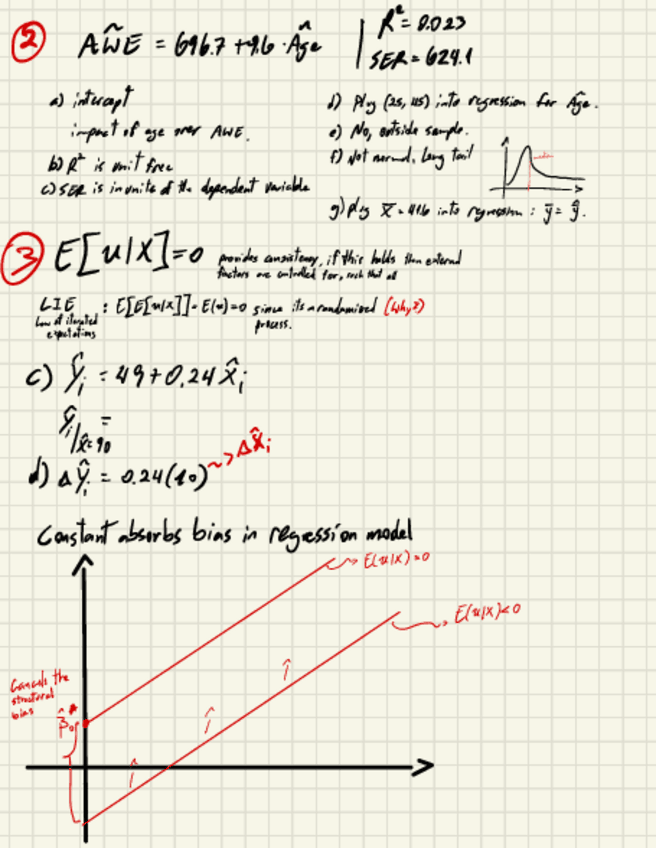 ② AŴE = 696.7 + 9.6 · Âge
R² = 0.023
SER = 624.1
a) intercept
impact of age over AWE.
b) R² is unit free
c) SER is in units of the dependent variable
d) Plug (25, 45) into regression for Âge.
e) No, outside sample.
f) Not normal, long tail
g) plug X̄ = 41.6 into regression : ȳ = ŷ.
③ E[u|X]=0 provides consistency, if this holds then external
factors are controlled for, such that all
LIE : E[E[u|x]] = E(u) = 0 since its a randomized (Why?)
Law of iterated process.
expectations
c) Ŷᵢ = 49 + 0.24 X̂ᵢ
Ŷᵢ|x̂=90 =
d) ΔŶᵢ = 0.24(10) ~> ΔX̂ᵢ
Constant absorbs bias in regression model
E(u|X)=0
E(u|X)<0
Cancels the
structural
bias
β̂₀*